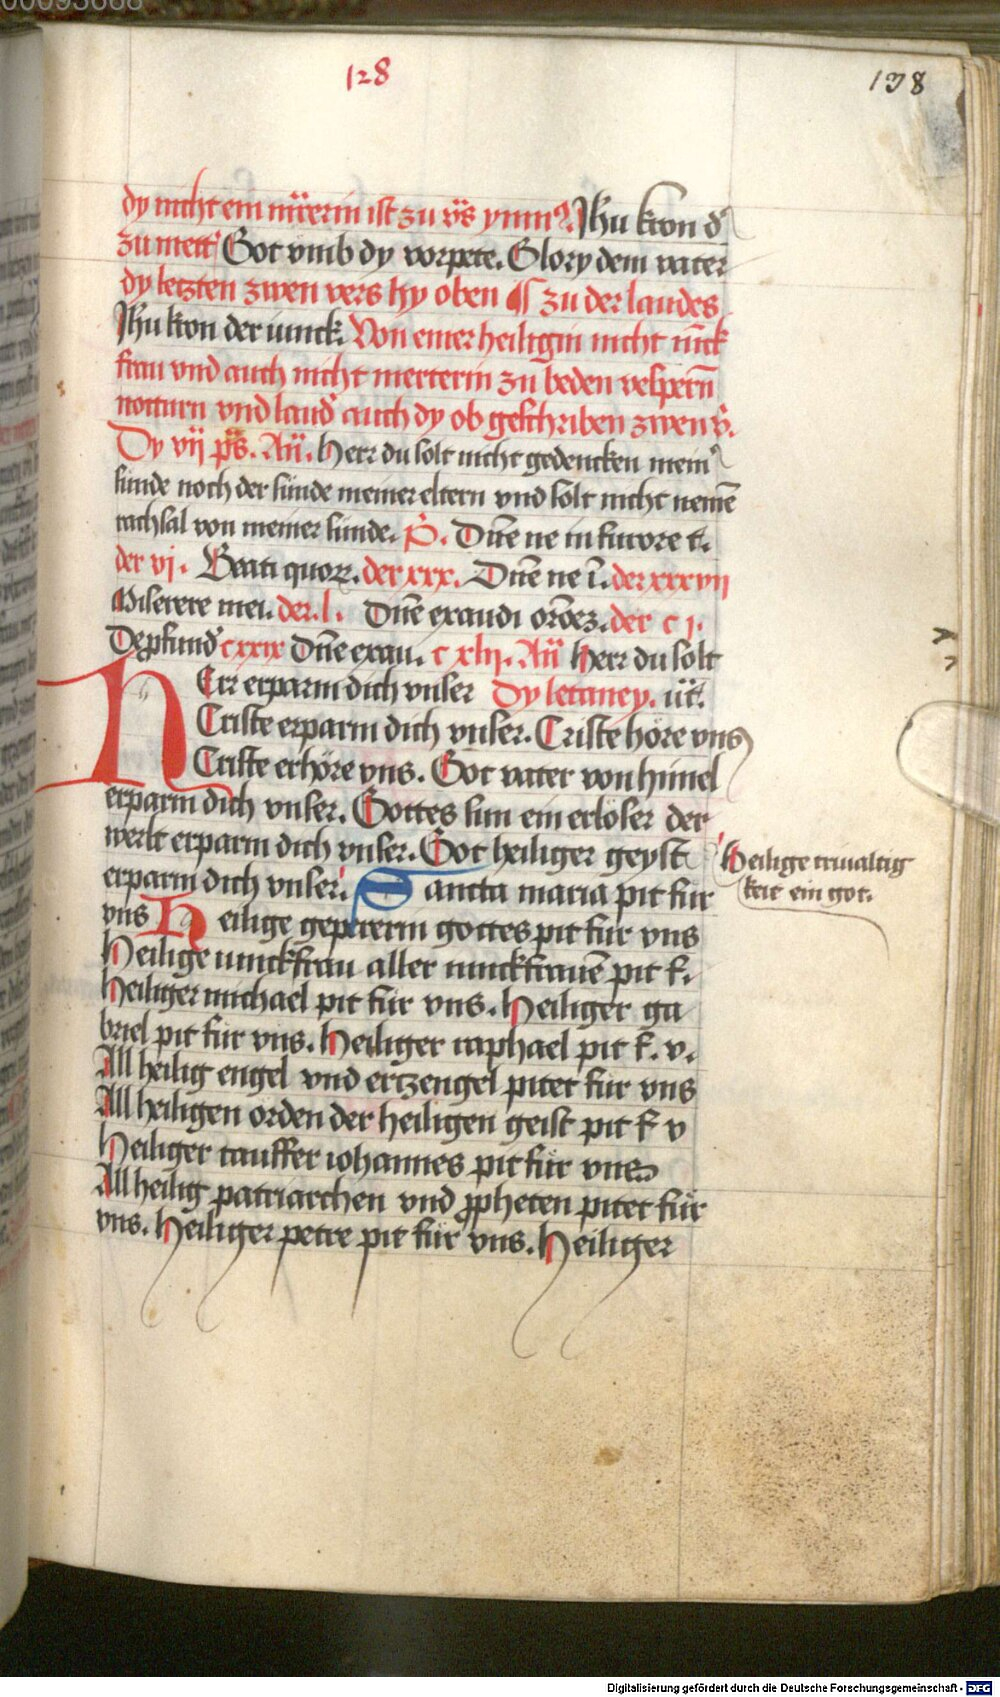 00093668
128
138
dy nicht ein mr̄erin ist zu v̈s ymn Jhu kron d'
zu mett' Got vmb dy vorpete. Glory dem vater
dy letzten zwen vers hy oben ¶ zu der laudes
Jhu kron der iunck. Von einer heiligin nicht iūck
frau vnd auch nicht merterin zu beden vespern̄
notturn vnd laud' auch dy ob geschriben zwen v̄.
Dy vij ps̄. An̄. Herr du solt nicht gedencken mein'
sunde noch der sunde meiner eltern vnd solt nicht nemē
rachsal von meiner sunde. P̄. Dn̄e ne in furore t̄.
der vj. Beati quoꝝ. der xxx. Dn̄e ne ī. der xxxvij
Miserere mei. der .l. Dn̄e exaudi or̄oeꝫ. der c j.
De ꝓfund' cxxix Dn̄e exau. c xlij. An̄ Herr du solt
HErr erparm dich vnser Dy letaney. üt̄.
Criste erparm dich vnser. Criste höre vns
Criste erhöre vns. Got vater von himel
erparm dich vnser. Gottes sun ein erlöser der
werlt erparm dich vnser. Got heiliger geyst
Heilige triualtig
keit ein got.
erparm dich vnser. Sancta maria pit für
vns Heilige gepererin gottes pit für vns
Heilige iunckfrau aller iunckfrauē pit f.
Heiliger michael pit für vns. Heiliger ga
briel pit für vns. Heiliger raphael pit f. v.
All heilig engel vnd ertzengel pitet für vns
All heiligen orden der heiligen geist pit f v
Heiliger tauffer iohannes pit für vns
All heilig patriarchen vnd ꝓpheten pitet für
vns. Heiliger petre pit für vns. Heiliger
Digitalisierung gefördert durch die Deutsche Forschungsgemeinschaft - DFG